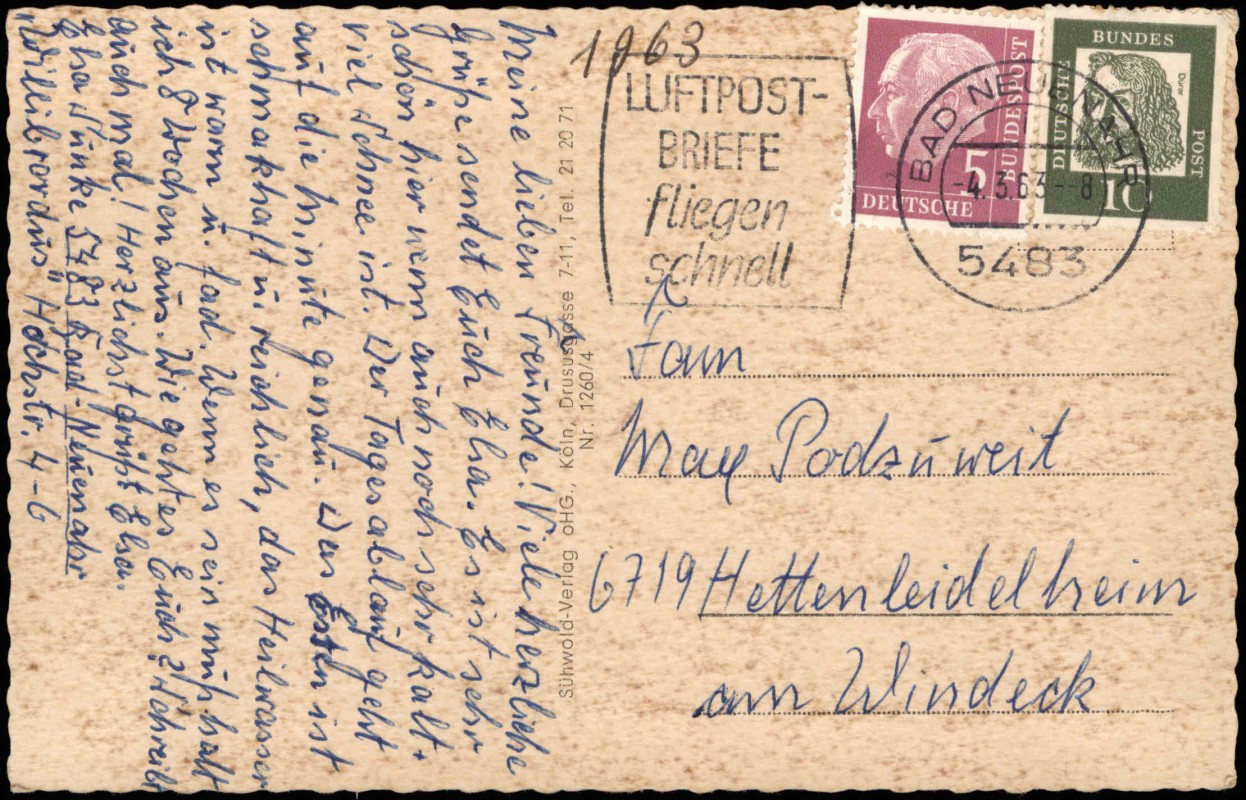 Meine lieben Freunde! Viele herzliche
Grüße sendet Euch Elsa. Es ist sehr
schön hier wenn auch noch sehr kalt +
viel Schnee ist. Der Tagesablauf geht
auf die Minute genau. Das Essen ist
schmackhaft u. reichlich, das Heilwasser
ist warm u. fad. Wenn es sein muß halt
ich 8 Wochen aus. Wie geht es Euch? Schreibt
auch mal! Herzlichst grüßt Elsa.
Elsa Funke 5483 Bad-Neuenahr
"Willibrordus" Hochstr. 4-6
Sühwold-Verlag OHG., Köln, Drususgasse 7-11, Tel. 21 20 71
Nr. 1260/4
1963
LUFTPOST-
BRIEFE
fliegen
schnell
5
BUNDESPOST
DEUTSCHE
BUNDES
DEUTSCHE
POST
Dürer
10
BAD NEUENAHR
-4.3.63--8
5483
Fam
Max Podzuweit
6719 Hettenleidelheim
am Windeck